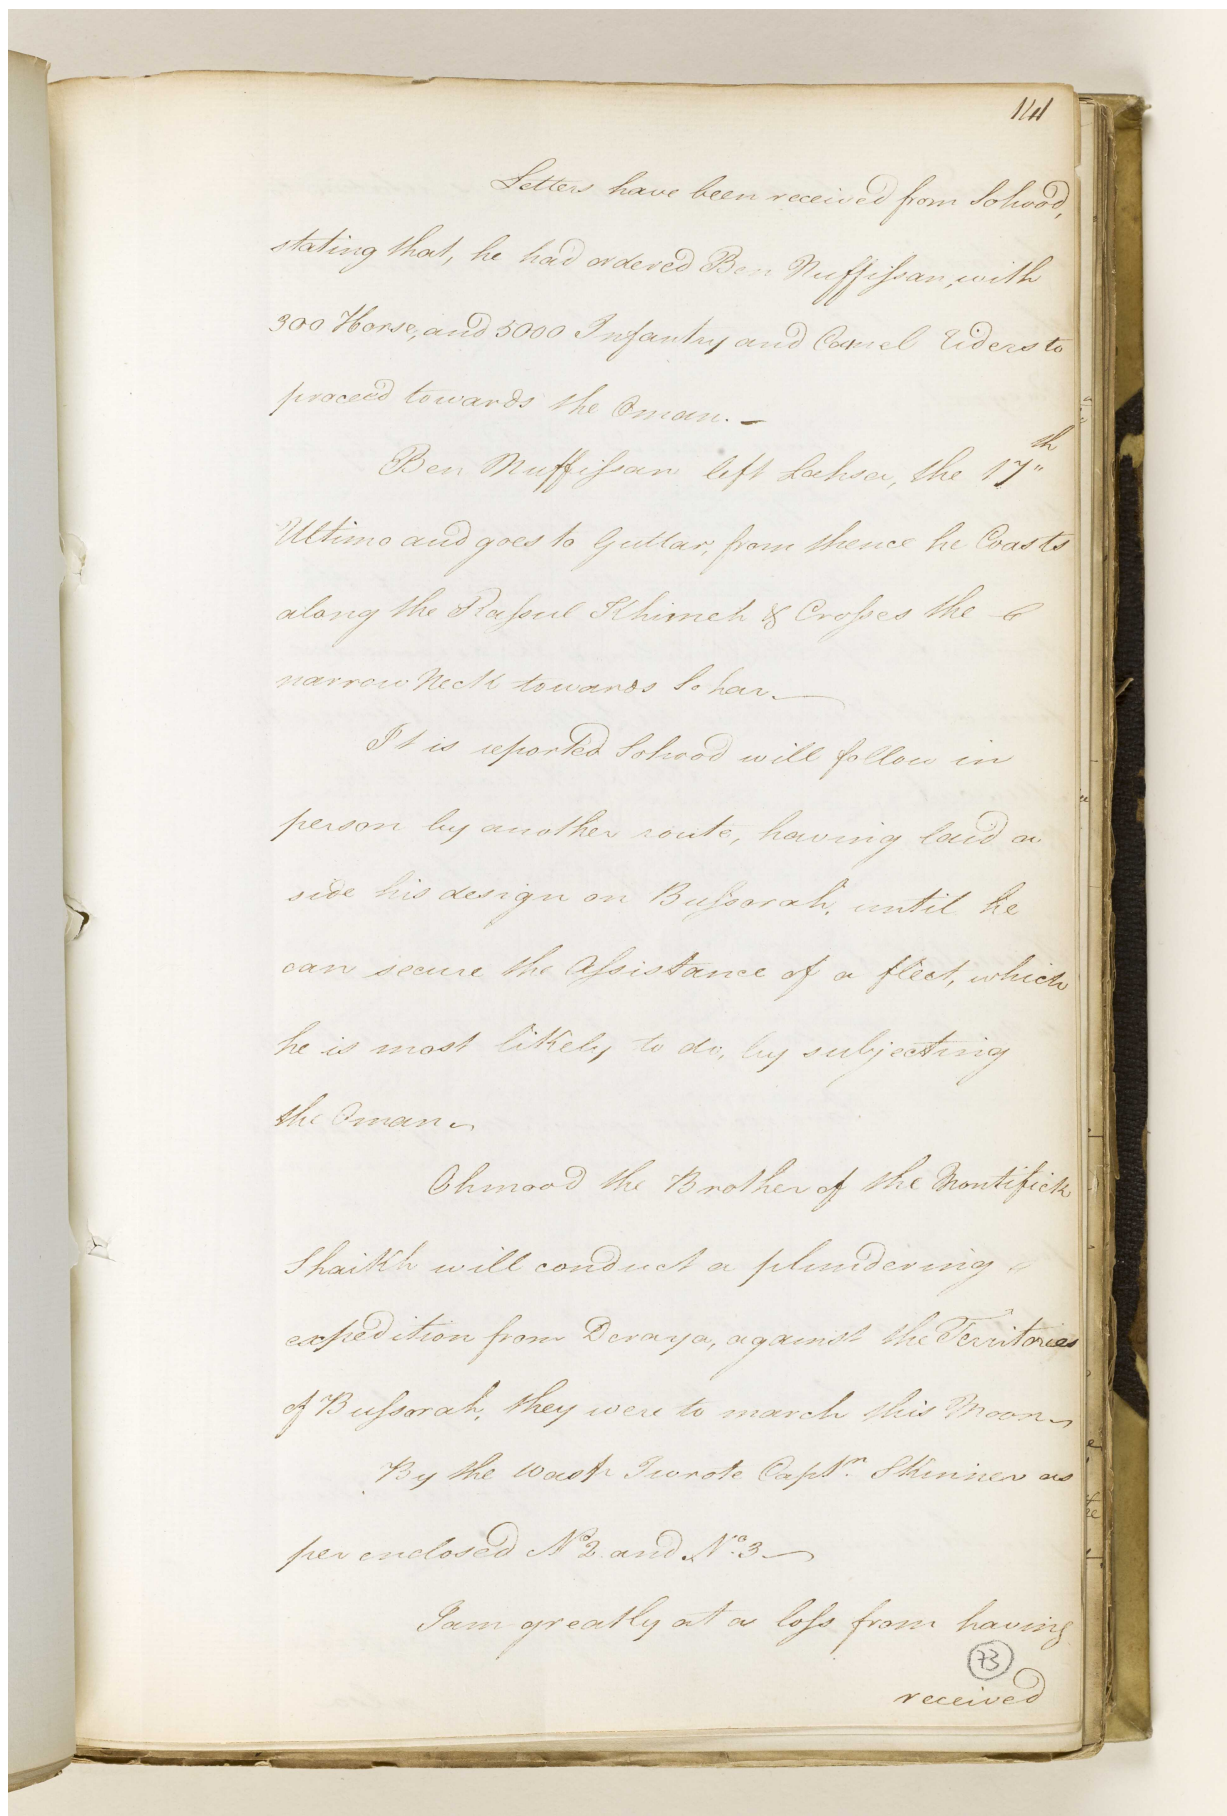 141
Letters have been received from Sohood,
stating that, he had ordered Ben Muffissan, with
300 Horse, and 5000 Infantry and Camel Riders to
proceed towards the Oman. –
Ben Muffissan left Lahsa, the 17th
Ultimo and goes to Guttar, from thence he Coasts
along the Rassul Khimeh & Crosses the
narrow Neck towards Sohar.
It is reported Sohood will follow in
person by another route, having laid a
side his design on Bussorah, until he
can secure the Assistance of a fleet, which
he is most likely to do, by subjecting
the Oman
Ohmood the Brother of the Montifick
Shaikh will conduct a plundering
expedition from Deraya, against the Territories
of Bussorah, they were to march this Moon
By the I wrote Captn. Skinner as
per enclosed No 2 and No. 3
I am greatly at a loss from having
73
received